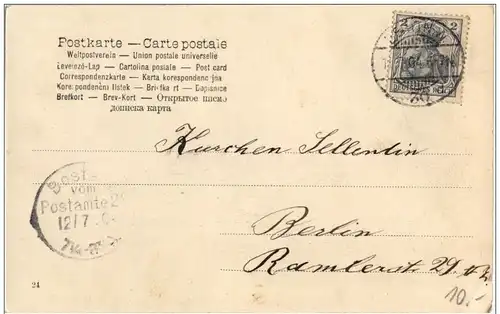 Postkarte — Carte postale
Weltpostverein — Union postale universelle
Levelező-Lap — Cartolina postale — Post card
Correspondenzkarte — Karta korespondencyjna
Korespondenční lístek — Briefkaart — Dopisnice
Brefkort — Brev-Kort — Открытое письмо
дописна карта
2 2
Kurchen Sellentin
Best.
vom
Postamte 2
12/7
7¼-8
Berlin
Ramlerstr 29
24
10.-